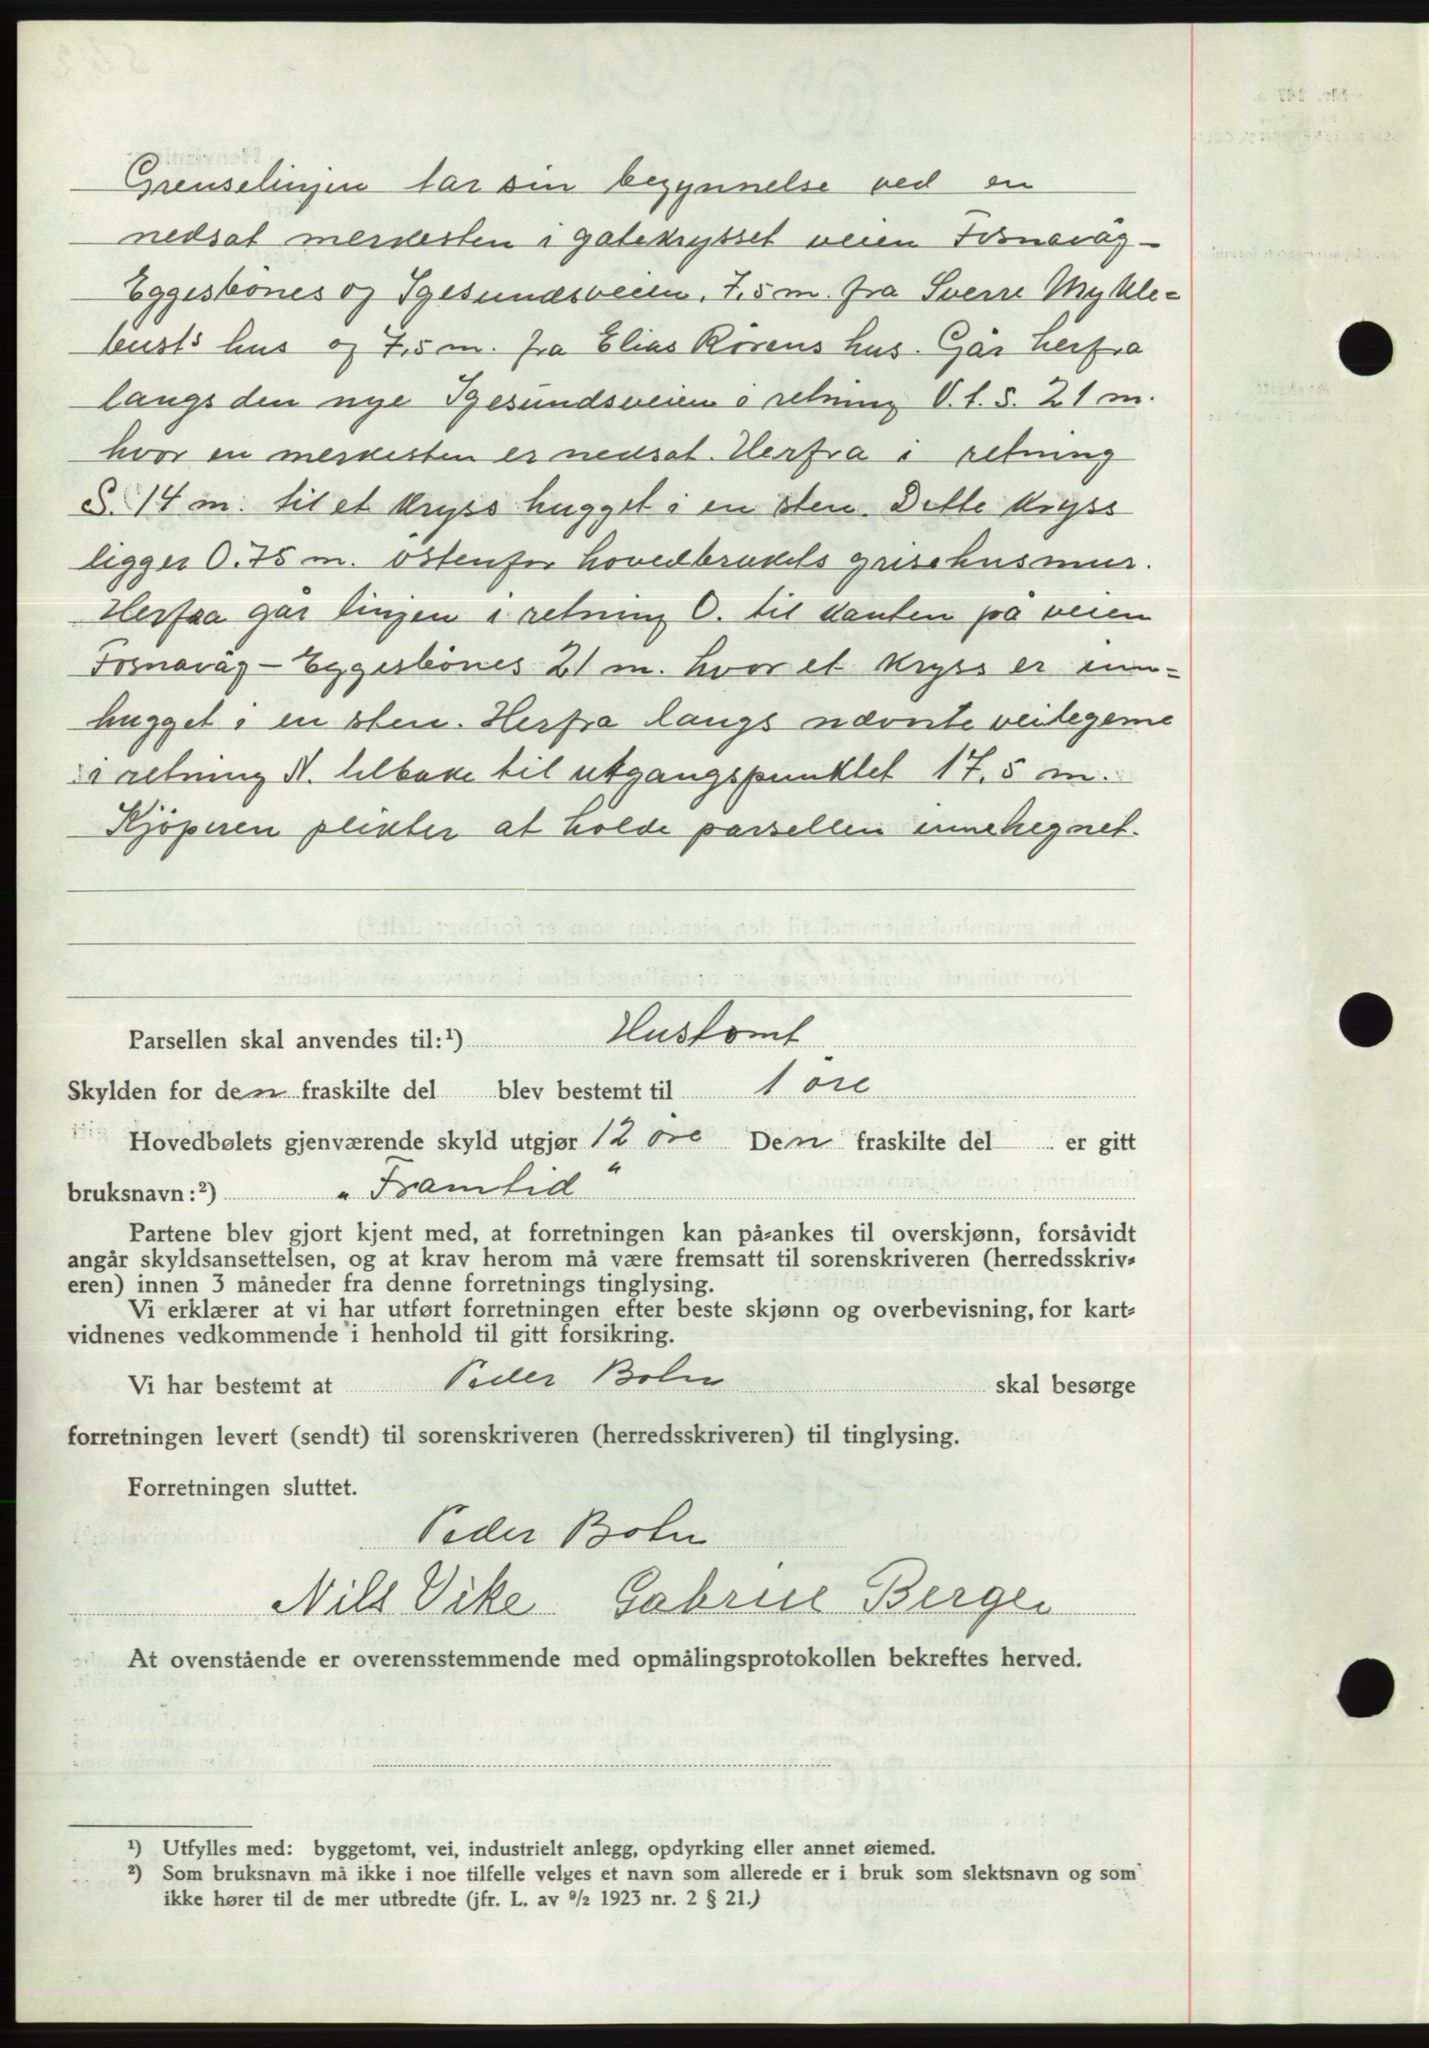 Grenselinjen tar sin begynnelse ved en
nedsat merkesten i gatekrysset veien Fosnavåg-
Eggesbönes og Igesundsveien, 7,5 m. fra Sverre Mykle=
busts hus og 7,5 m. fra Elias Rörens hus. Går herfra
langs den nye Igesundsveien i retning V.t.S. 21 m.
hvor en merkesten er nedsat. Herfra i retning
S. 14 m. til et kryss hugget i en sten. Dette kryss
ligger 0.75 m. östenfor hovedbrukets grisehusmur.
Herfra går linjen i retning O. til kanten på veien
Fosnavåg-Eggesbönes 21 m. hvor et kryss er inn=
hugget i en sten. Herfra langs nævnte veilegeme
i retning N. tilbake til utgangspunktet 17,5 m.
Kjöperen plikter at holde parsellen innehegnet.
Parsellen skal anvendes til:¹) Hustomt
Skylden for den fraskilte del blev bestemt til 1 öre
Hovedbølets gjenværende skyld utgjør 12 öre Den fraskilte del er gitt
bruksnavn:²) "Framtid"
Partene blev gjort kjent med, at forretningen kan på-ankes til overskjønn, forsåvidt
angår skyldsansettelsen, og at krav herom må være fremsatt til sorenskriveren (herredsskriv-
eren) innen 3 måneder fra denne forretnings tinglysing.
Vi erklærer at vi har utført forretningen efter beste skjønn og overbevisning, for kart-
vidnenes vedkommende i henhold til gitt forsikring.
Vi har bestemt at Peder Bohn skal besørge
forretningen levert (sendt) til sorenskriveren (herredsskriveren) til tinglysing.
Forretningen sluttet.
Peder Bohn
Nils Vike Gabriel Berge
At ovenstående er overensstemmende med opmålingsprotokollen bekreftes herved.
¹) Utfylles med: byggetomt, vei, industrielt anlegg, opdyrking eller annet øiemed.
²) Som bruksnavn må ikke i noe tilfelle velges et navn som allerede er i bruk som slektsnavn og som
ikke hører til de mer utbredte (jfr. L. av ⁹/₂ 1923 nr. 2 § 21.)